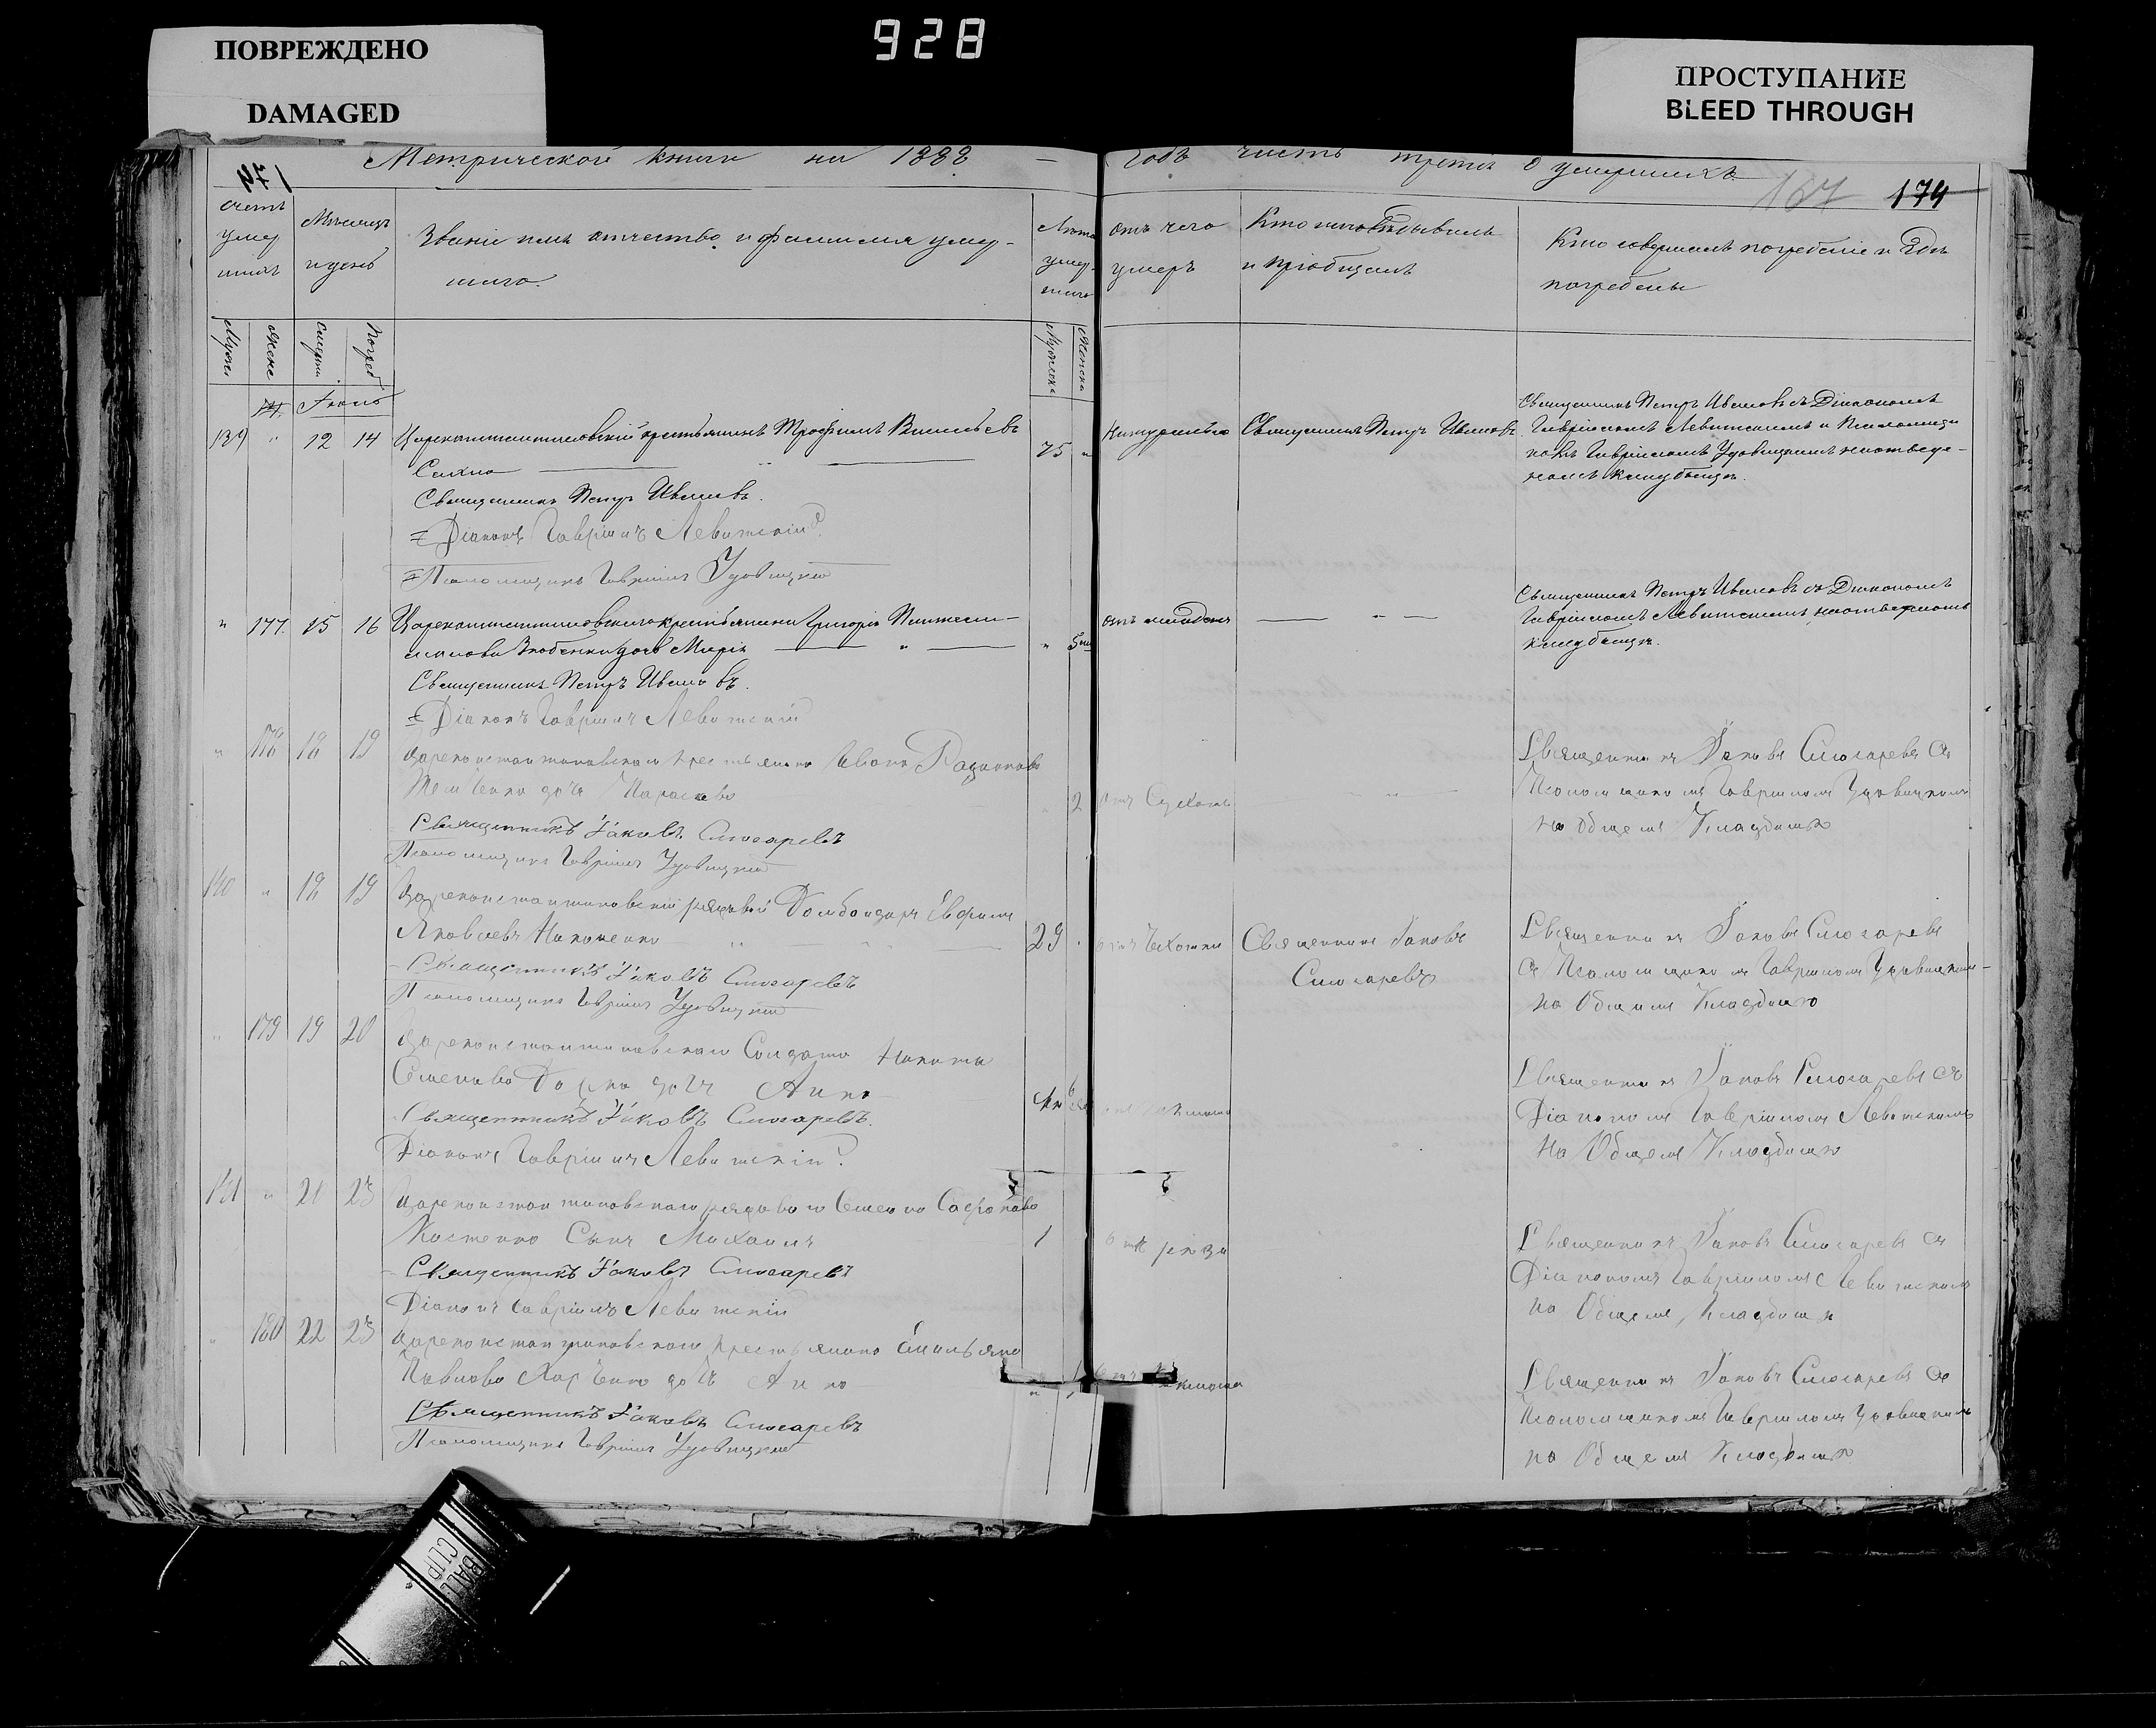 928
ПОВРЕЖДЕНО
DAMAGED
ПРОСТУПАНИЕ
BLEED THROUGH
Метрической книги на 1888 — годъ часть третья о умершихъ
167 174
счетъ умер шихъ
Мѣсяцъ и день
Званіе имя отчество и фамилія умер-
шаго.
Лѣта умер- шаго
отъ чего умеръ
Кто исповѣдывалъ
и пріобщалъ
Кто совершалъ погребеніе и гдѣ
погребены
Мужс Женс Смерти. Погреб Мужска Женска
Іюнь
139 " 12 14 Цареконстантиновскій крестьянинъ Трофимъ Васильевъ 75 " Священникъ Петръ Ивановъ
Сахно
Священникъ Петръ Ивановъ.
Діаконъ Гавріилъ Левитскій
Псаломщикъ Гавріилъ Удовицкій
Священникъ Петръ Ивановъ съ Діакономъ
Гавріиломъ Левитскимъ и Псаломщи
комъ Гавріиломъ Удовицкимъ на отведе-
номъ кладбищѣ.
" 177. 15 16 Цареконстантиновскаго крестьянина Григорія
дочь Марія " 5
Священникъ Петръ Ивановъ.
Діаконъ Гавріилъ Левитскій
Священникъ Петръ Ивановъ съ Діакономъ
Гавріиломъ Левитскимъ на отведеномъ
кладбищѣ.
" 178 18 19 Цареконстантиновскаго крестьянина Ивана Радионова
дочь Параскева 2
Священникъ Іаковъ Слюсаревъ
Псаломщикъ Гавріилъ Удовицкій
Священникъ Іаковъ Слюсаревъ съ
Псаломщикомъ Гавріиломъ Удовицкимъ
на Общемъ Кладбищѣ
140 " 18 19 Цареконстантиновскій рядовой Ефимъ
Яковлевъ Никоненко 29 " отъ Чахотки Священникъ Іаковъ
Слюсаревъ
Священникъ Іаковъ Слюсаревъ
Псаломщикъ Гавріилъ Удовицкій
Священникъ Іаковъ Слюсаревъ
съ Псаломщикомъ Гавріиломъ Удовицкимъ
на Общемъ Кладбищѣ
" 179 19 20 Цареконстантиновскаго Солдата Никиты
Семенова дочь Анна
Священникъ Іаковъ Слюсаревъ.
Діаконъ Гавріилъ Левитскій.
Священникъ Іаковъ Слюсаревъ съ
Діакономъ Гавріиломъ Левитскимъ
на Общемъ Кладбищѣ
141 " 21 23 Цареконстантиновскаго рядоваго Семена Сафонова
Костенко Сынъ Михаилъ 1
Священникъ Іаковъ Слюсаревъ
Діаконъ Гавріилъ Левитскій
Священникъ Іаковъ Слюсаревъ съ
Діакономъ Гавріиломъ Левитскимъ
на Общемъ Кладбищѣ
" 180 22 23 Цареконстантиновскаго крестьянина Емельяна
Павлова Харченко дочь Анна
Священникъ Іаковъ Слюсаревъ
Псаломщикъ Гавріилъ Удовицкій
Священникъ Іаковъ Слюсаревъ съ
Псаломщикомъ Гавріиломъ Удовицкимъ
на Общемъ Кладбищѣ